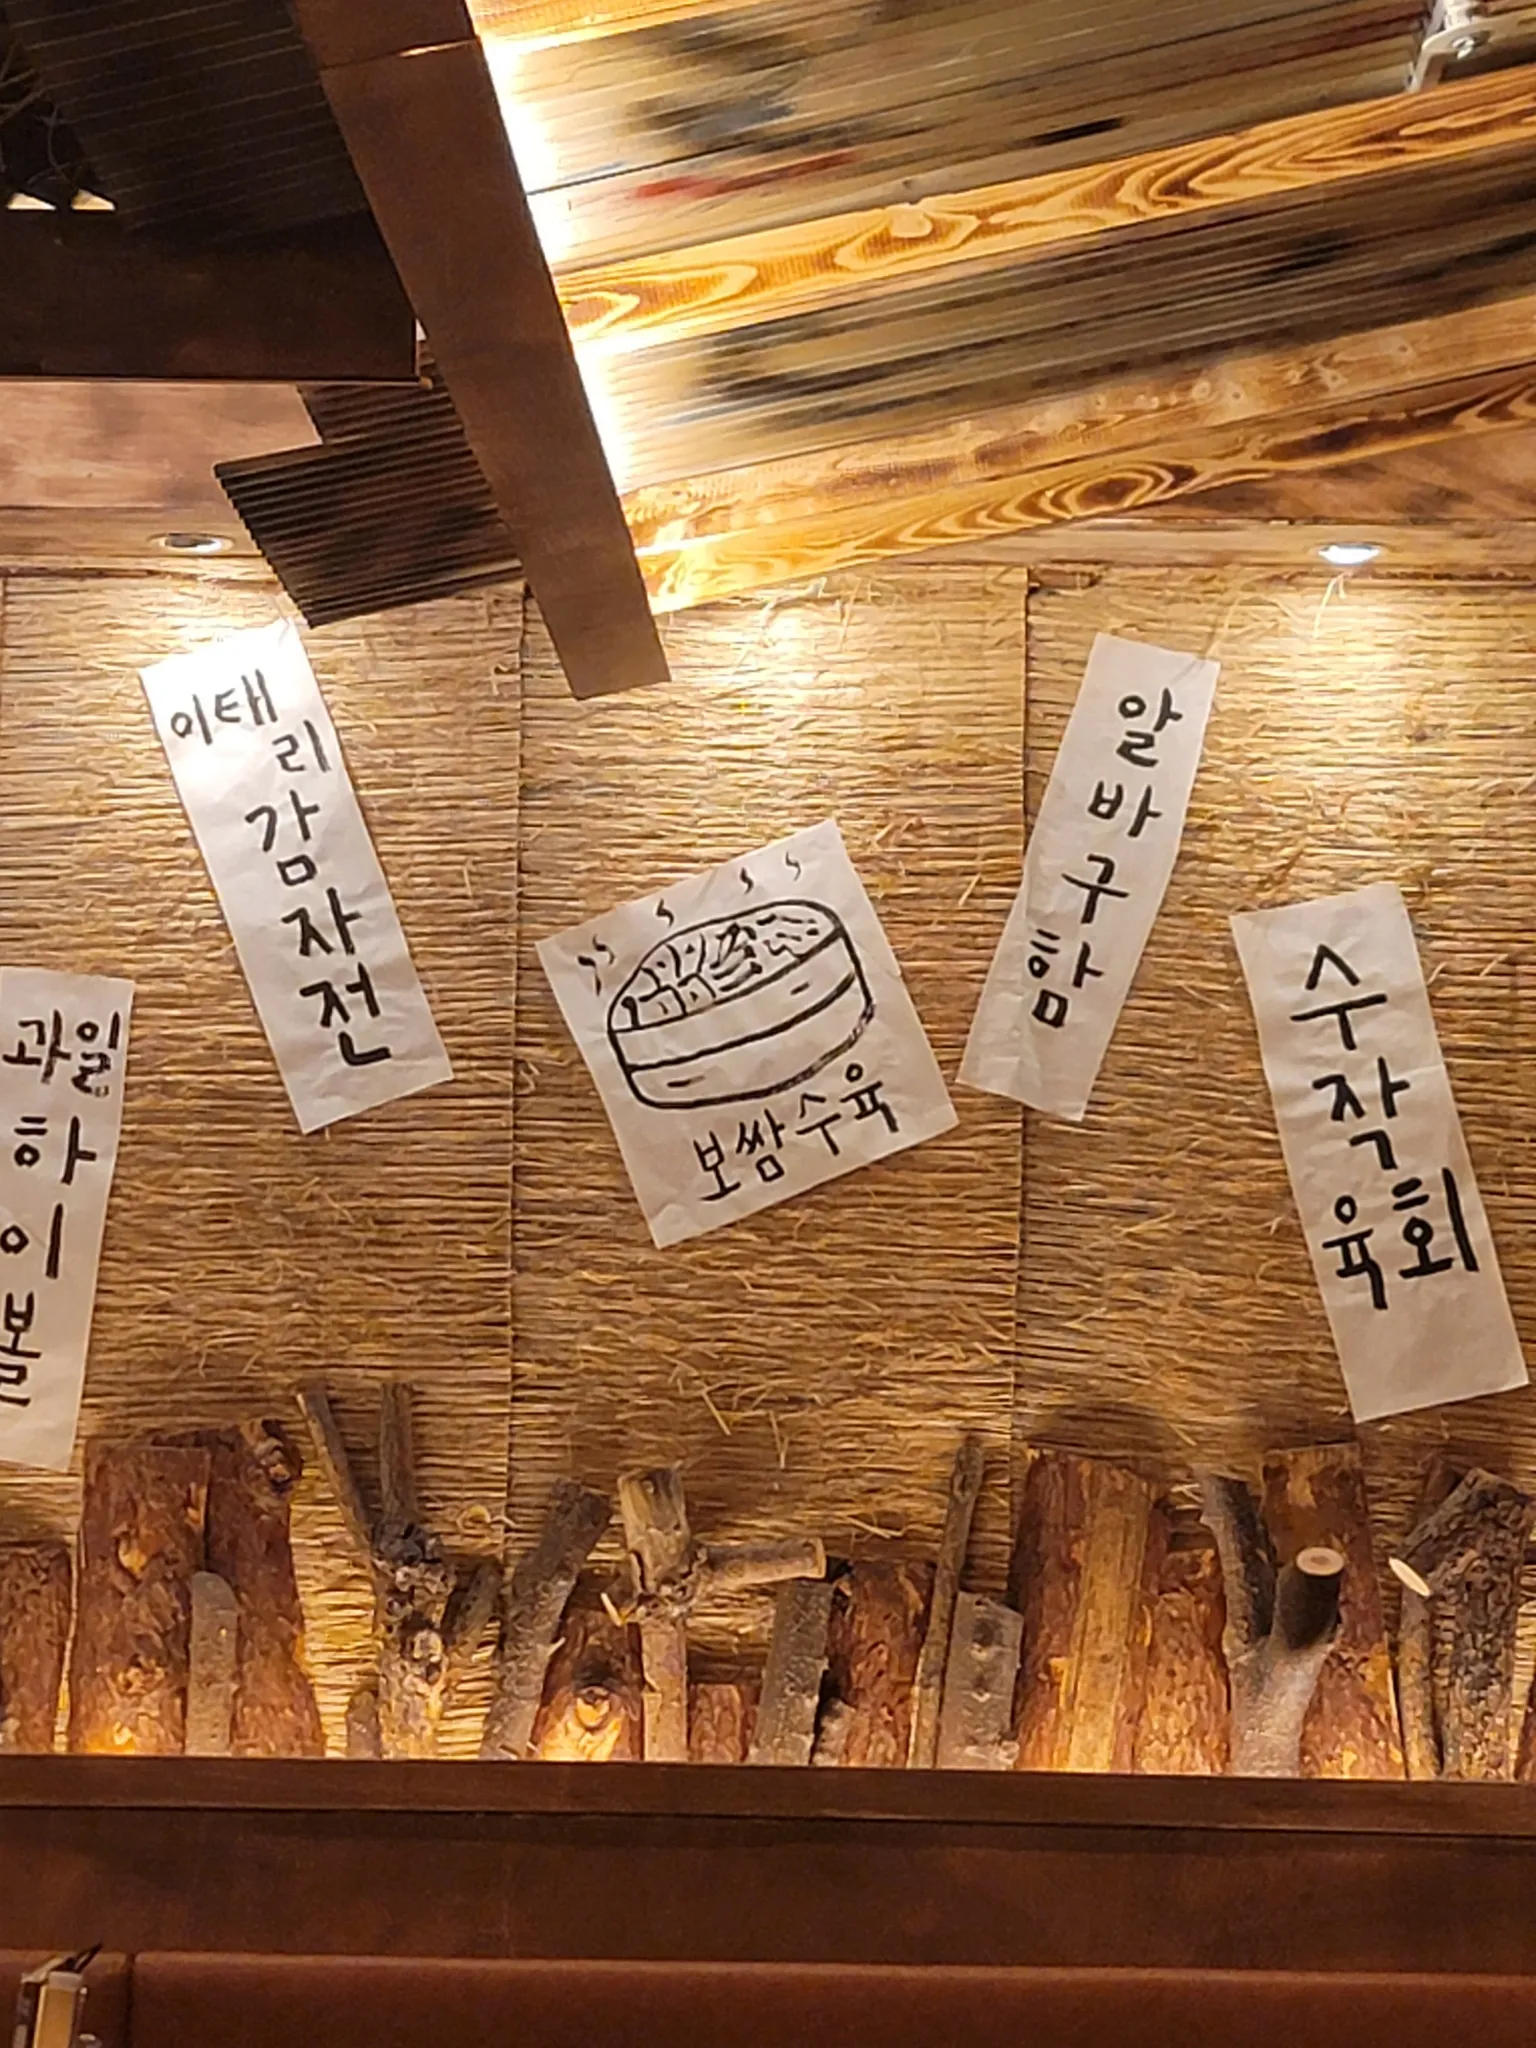 과일
하
이
볼
이태
리
감
자
전
보쌈수육
알
바
구
함
수
작
육회